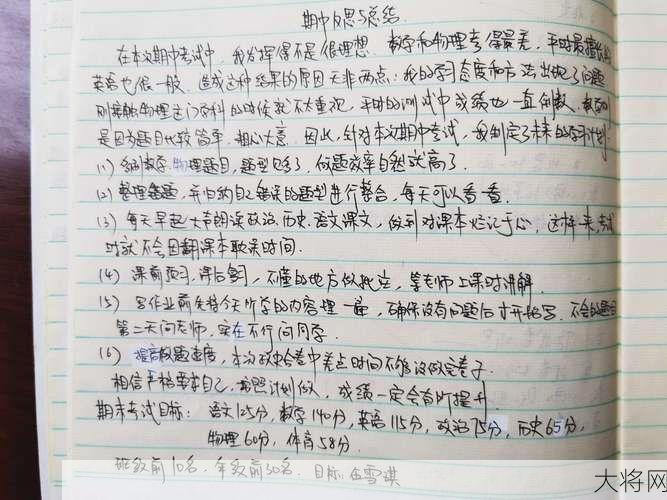 期中反思与总结
在本次期中考试中，我发挥得不是很理想，数学和物理考得最差，平时最擅长的
英语也很一般，造成这种结果的原因无非两点：我的学习态度和方法出现了问题
刚接触物理这门学科的时候就不太重视，平时的测试中成绩也一直倒数，数学
是因为题目比较简单，粗心大意。因此，针对本次期中考试，我制定了未来的学习计划
(1) 多刷数学，物理题目，题型见多了，做题效率自然就高了。
(2) 整理错题，并归纳自己错误的题型进行整合，每天可以看一看。
(3) 每天早起大声朗读政治，历史，语文课文，做到对课本烂记于心，这样一来，考试
时就不会因翻课本耽误时间。
(4) 课前预习，课后复习，不懂的地方做批注，等老师上课时讲解。
(5) 写作业前先将今天所学的内容理一遍，确保没有问题后才开始写，不会的题目
第二天问老师，实在不行问同学。
(6) 提高做题速度，本次政史合卷中差点时间不够没做完卷子。
相信严格要求自己，按照计划做，成绩一定会有所提升
期末考试目标：语文125分，数学140分，英语115分，政治75分，历史65分，
物理60分，体育58分。
班级前10名，年级前30名。目标：伍雪琪
大将网